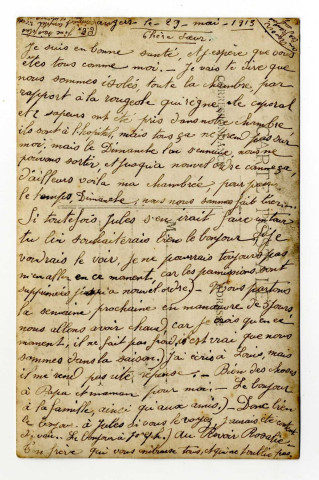 Angers le 29 mai 1915
Chère Sœur.
Je suis en bonne santé, et j'espère que vous
êtes tous comme moi. Je vais te dire que
nous sommes isolés, toute la chambre, par
rapport à la rougeole qui règne le caporal
et 2 sapeurs ont été pris dans notre chambre
ils sont à l'hopital, mais tous ça ne prend pas sur
moi, mais le Dimanche l'on s'ennuie, nous ne
pouvons sortir et jusqu'à nouvel ordre comme ça
d'ailleurs voila ma chambrée pour passer
le temps, Dimanche, nous nous sommes fait tirer
Si toutefois, Jules s'en irait faire un tour
tu lui souhaiterais bien le bonjour
voudrais le voir, je ne pourrais toujours pas
m'en aller en ce moment, car les permissions sont
supprimées jusqu'à nouvel ordre) - Nous partons
la semaine prochaine en manœuvre de 3 jours
nous allons avoir chaud, car je crois qu'en ce
moment, il ne fait pas froid, c'est vrai que nous
sommes dans la saison.) J'ai écris à Louis, mais
il ne rend pas vite réponse : - Bien des choses
à Papa et maman pour moi - Le bonjour
à la famille, ainsi qu'aux amis, - Donc bien
le bonjour à Jules si vous le voyez
Au Revoir Rosalie
Ton frère qui vous embrasse tous, et qui ne t'oublie pas,